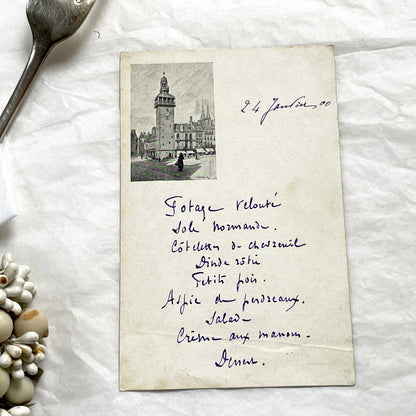 24 Janvier 00
Potage velouté
Sole Normande.
Côtelettes de chevreuil
Dinde rôtie
Petits pois.
Aspic de perdreaux.
Salade
Crème aux marrons.
Dessert.